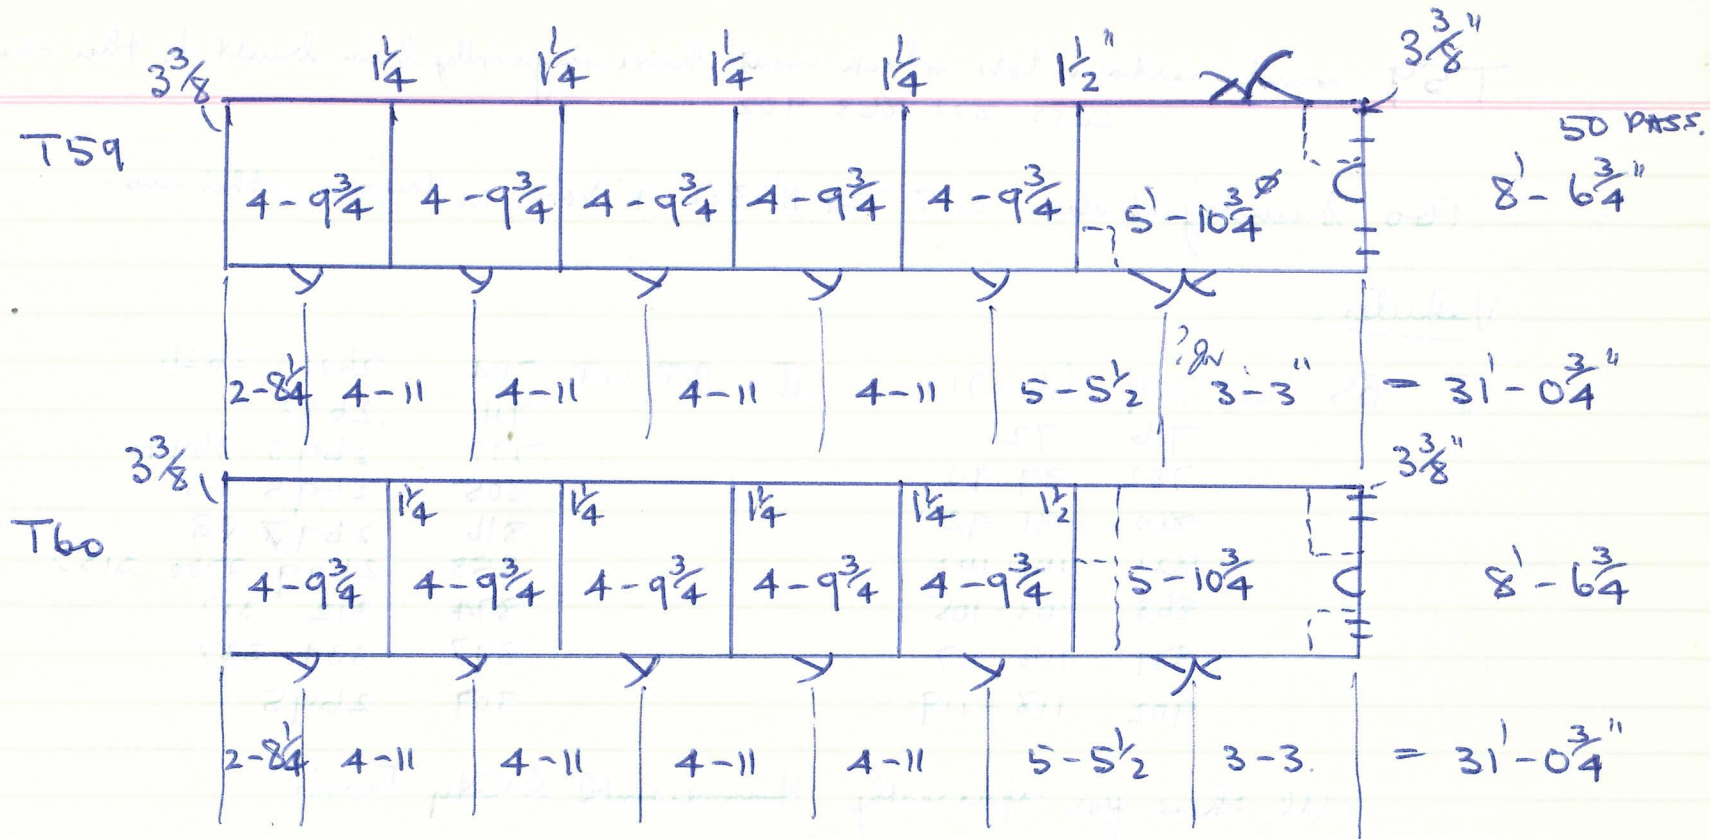 3 3/8 1 1/4 1 1/4 1 1/4 1 1/4 1 1/2" 3 3/8"
T59 50 PASS.
4-9 3/4 4-9 3/4 4-9 3/4 4-9 3/4 4-9 3/4 5'-10 3/4 8'-6 3/4"
2-8 1/4 4-11 4-11 4-11 4-11 5-5 1/2 3-3" = 31'-0 3/4"
3 3/8 3 3/8"
1 1/4 1 1/4 1 1/4 1 1/4 1 1/2
T60
4-9 3/4 4-9 3/4 4-9 3/4 4-9 3/4 4-9 3/4 5-10 3/4 8'-6 3/4
2-8 1/4 4-11 4-11 4-11 4-11 5-5 1/2 3-3. = 31'-0 3/4"